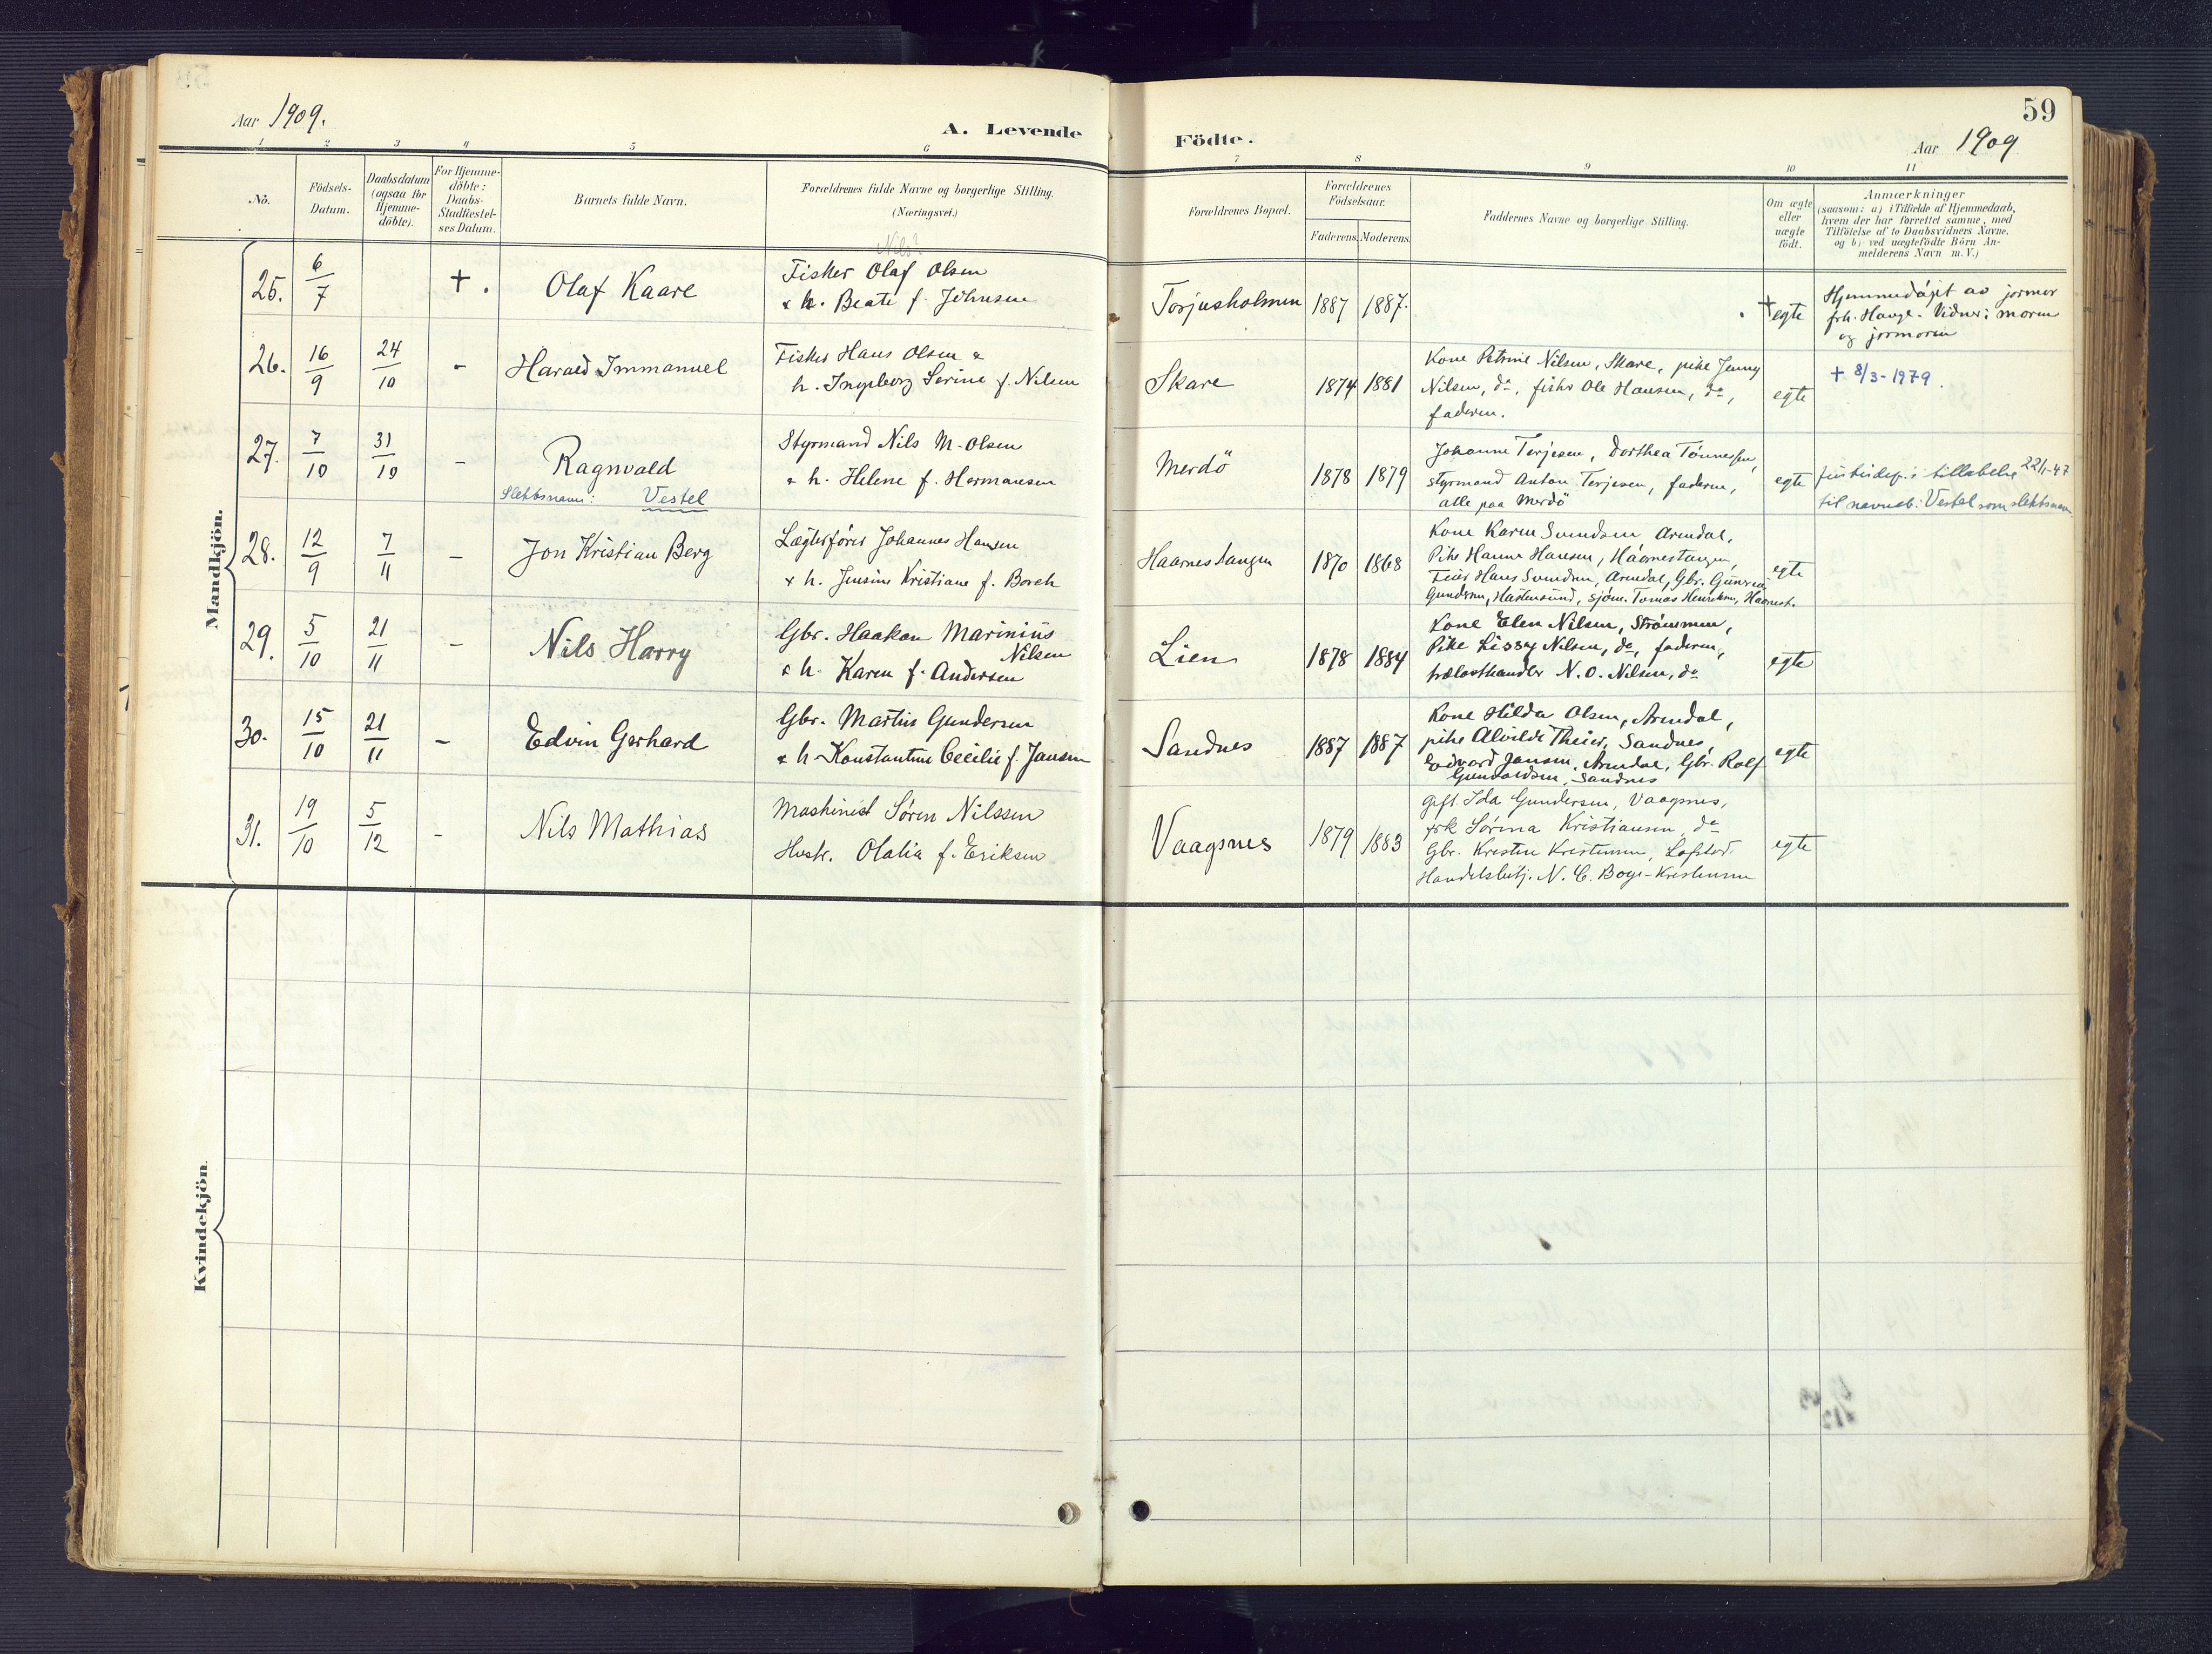 59
Aar 1909.
A. Levende Födte.
Aar 1909
1 2 3 4 5 6 7 8 9 10 11
No.
Födsels-Datum.
Daabsdatum (ogsaa for Hjemme-döbte).
For Hjemme-döbte: Daabs-Stadfæstel-ses Datum.
Barnets fulde Navn.
Forældrenes fulde Navne og borgerlige Stilling. (Næringsvei.)
Forældrenes Bopæl.
Forældrenes Födselsaar.
Faderens. Moderens.
Faddernes Navne og borgerlige Stilling.
Om ægte eller uægte födt.
Anmærkninger
(saasom: a) i Tilfælde af Hjemmedaab,
hvem der har forrettet samme, med
Tilföielse af to Daabsvidners Navne.
og b) ved uægtefödte Börn An-
melderens Navn m. V.)
Mandkjön.
Nils?
25. 6/7 +. Olaf Kaare
Fisker Olaf Olsen
& h. Beate f. Johnsen
Torjusholmen 1887 1887.
+ egte
Hjemmedøpt av jormor
frk. Hauge. Vidner: moren
og jormoren
26. 16/9 24/10 - Harald Immanuel
Fisker Hans Olsen &
h. Ingeborg Serine f. Nilsen
Skare 1874 1881
Kone Petrine Nilsen, Skare, pike Jenny
Nilsen, do, fisker Ole Hansen, do,
faderen.
egte
+ 8/3-1979.
27. 7/10 31/10 - Ragnvald
Slektsnavn: Vestel
Styrmand Nils M. Olsen
& h. Helene f. Hermansen
Merdö 1878 1879
Johanne Terjesen, Dorthea Tönnessen,
styrmand Anton Terjesen, faderen,
alle paa Merdö
egte
Justisdep.s tillatelse 22/1-47
til navneb: Vestel som slektsnavn
28. 12/9 7/11 - Jon Kristian Berg
Lægterförer Johannes Hansen
& h. Jensine Kristiane f. Borch
Haarnestangen 1870 1868
Kone Karen Svendsen Arendal,
Pike Hanna Hansen, Haarnestangen,
Feier Hans Svendsen, Arendal, Gbr.
Gundersen, sjöm. Tomas Henriksen, Haarnest.
egte
29. 5/10 21/11 - Nils Harry
Gbr. Haakon Marinius
Nilsen
& h. Karen f. Andersen
Lien 1878 1884
Kone Elen Nilsen, Strömmen,
Pike Lissy Nilsen, do, faderen,
trælasthandler N. O. Nilsen, do
egte
30. 15/10 21/11 - Edvin Gerhard
Gbr. Martin Gundersen
& h. Konstantine Cecilie f. Jansen
Sandnes 1887 1887
Kone Hilda Olsen, Arendal,
pike Alvilde Theier, Sandnes,
Edvard Jansen, Arendal, Gbr. Rolf
Gundersen, Sandnes
egte
31. 19/10 5/12 - Nils Mathias
Maskinist Sören Nilssen
Hustr. Olalia f. Eriksen
Vaagsnes 1879 1883
Gift Ida Gundersen, Vaagsnes,
frk Sörina Kristiansen, do
Gbr. Kresten Kristensen, Lofstad.
Handelsbetj. N. C. Boye-Kristensen
egte
Kvindekjön.